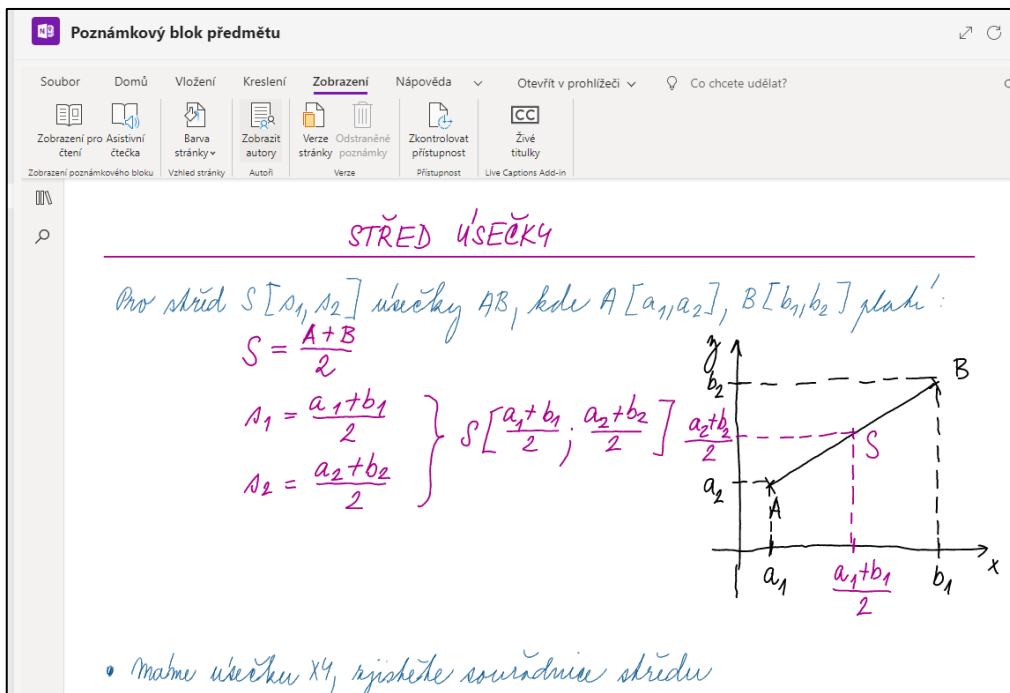 Poznámkový blok předmětu
Soubor Domů Vložení Kreslení Zobrazení Nápověda Otevřít v prohlížeči Co chcete udělat?
Zobrazení pro čtení Asistivní čtečka Barva stránky Zobrazit autory Verze stránky Odstraněné poznámky Zkontrolovat přístupnost CC Živé titulky
Zobrazení poznámkového bloku Vzhled stránky Autoři Verze Přístupnost Live Captions Add-in
STŘED ÚSEČKY
Pro střed S[s₁, s₂] úsečky AB, kde A[a₁, a₂], B[b₁, b₂] platí:
S = (A+B)/2
s₁ = (a₁+b₁)/2
s₂ = (a₂+b₂)/2
S[(a₁+b₁)/2 ; (a₂+b₂)/2]
y
b₂
B
(a₂+b₂)/2
S
a₂
A
x
a₁
(a₁+b₁)/2
b₁
• Máme úsečku XY, zjistěte souřadnice středu